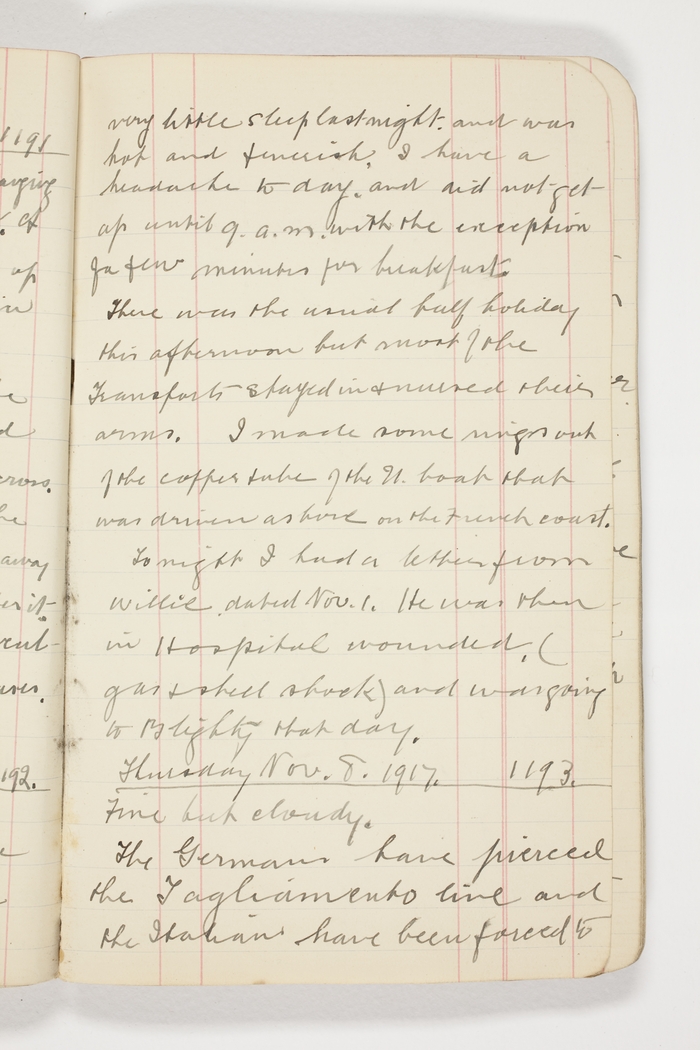 very little sleep last night. and was
hot and feverish. I have a
headache to day, and did not get
up until 9. a.m. with the exception
of a few minutes for breakfast.
There was the usual half holiday
this afternoon but most of the
Transports stayed in & nursed their
arms. I made some rings out
of the copper tube of the U. boat that
was driven ashore on the French coast.
To night I had a letter from
Willie dated Nov. 1. He was then
in Hospital wounded, (
gas & shell shock) and was going
to Blighty that day.
Thursday Nov. 8. 1917. 1193.
Fine but cloudy.
The Germans have pierced
the Tagliamento line and
the Italians have been forced to
1191
up
in
away
192.